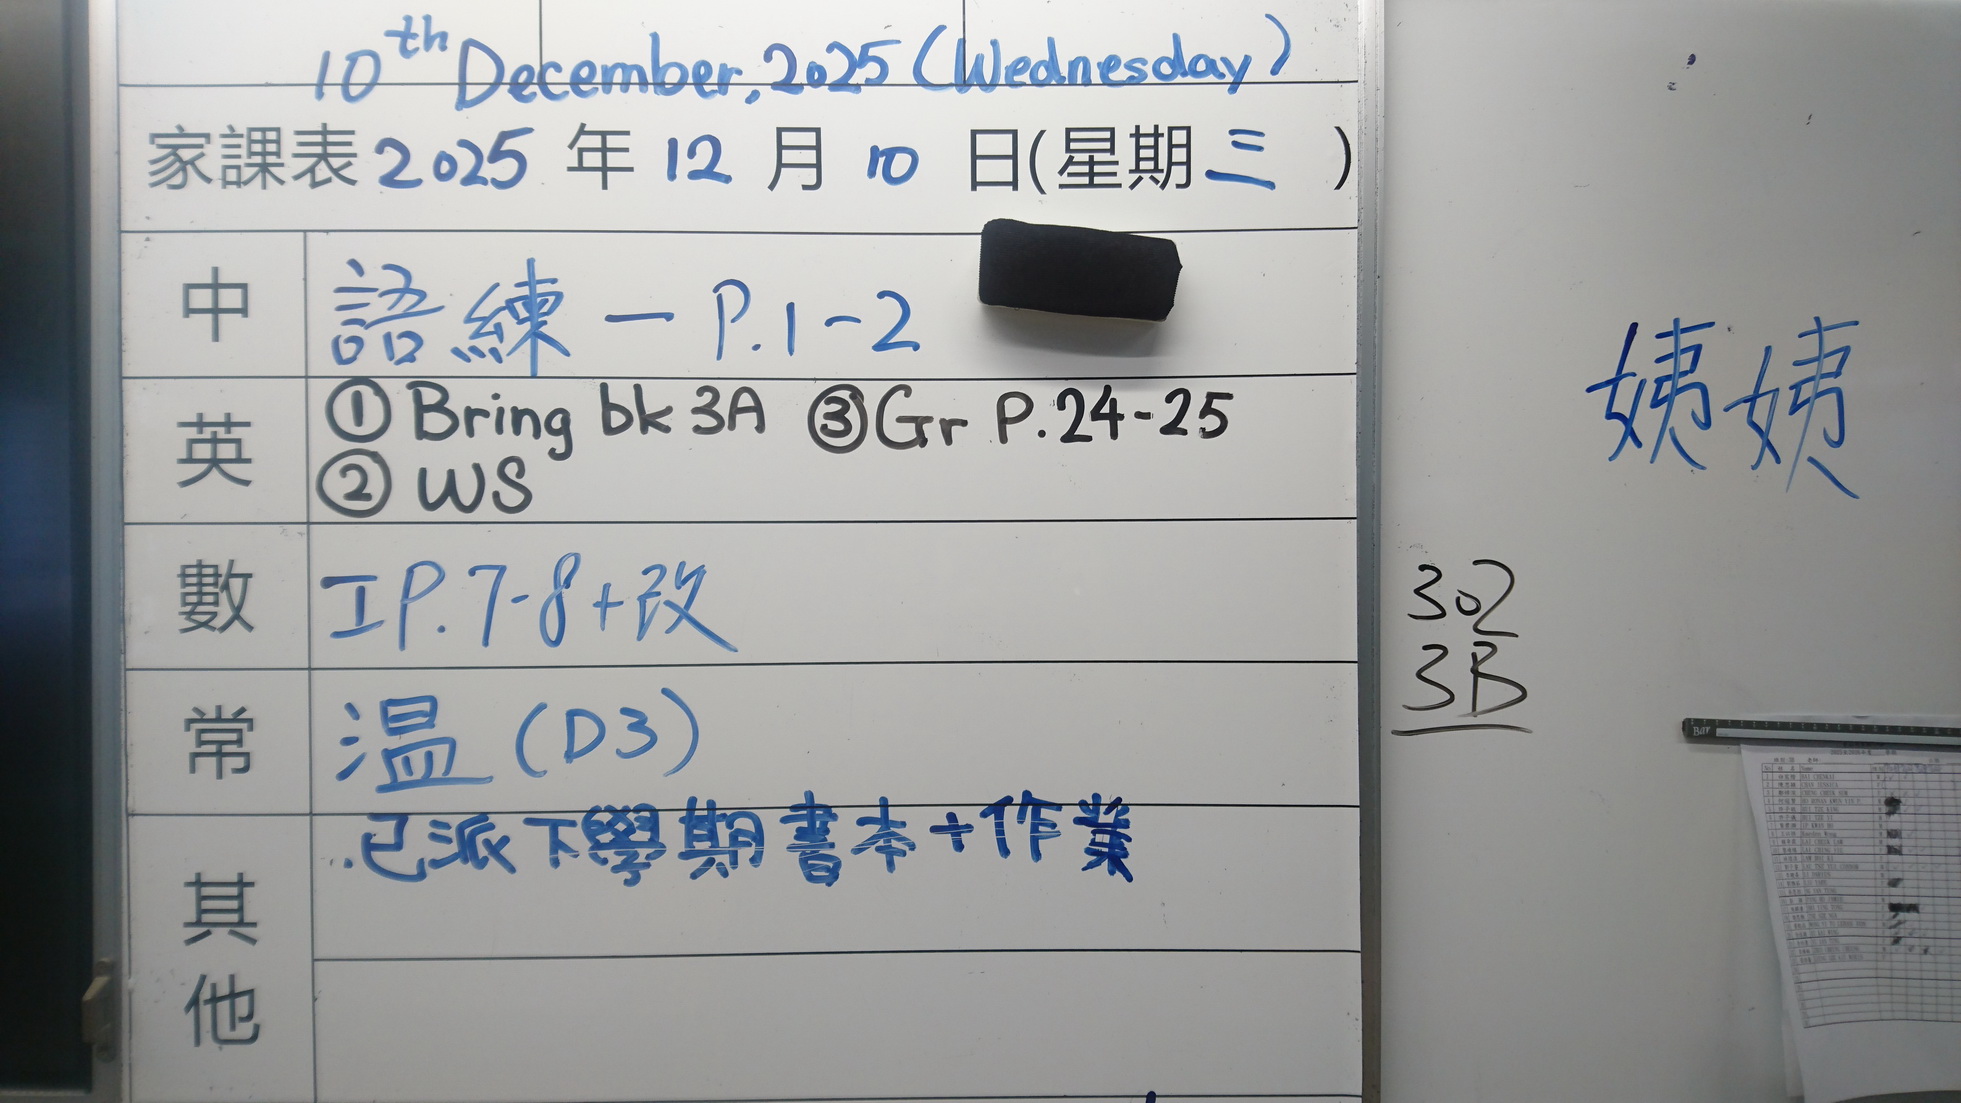 10th December, 2025 (Wednesday)
家課表 2025 年 12 月 10 日(星期三 )
中
語練一 P.1-2
英
① Bring bk 3A ③ Gr P.24-25
② WS
數
工P.7-8+改
常
溫 (D3)
其他
.已派下學期書本+作業
姨姨
302
3B